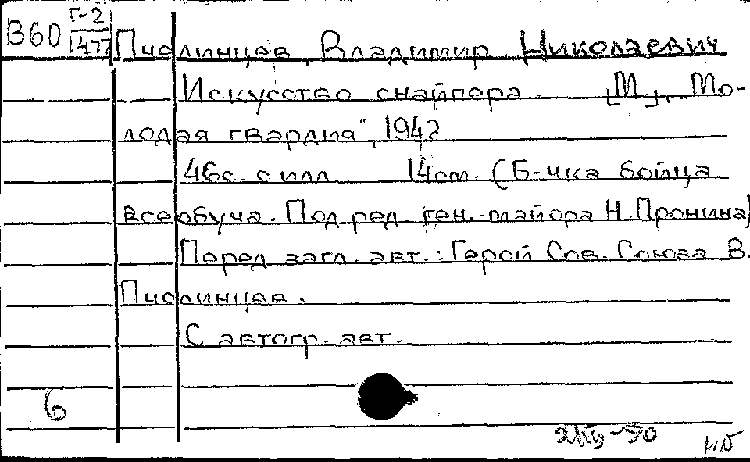 В60 Г-2
1477
Пчелинцев, Владимир Николаевич
Искусство снайпера. [М.], "Мо-
лодая гвардия", 1942
46с. с илл. 14см. (Б-чка бойца
всеобуча. Под ред. ген.-майора Н. Пронина)
Перед загл. авт.: Герой Сов. Союза В.
Пчелинцев.
С автогр. авт.
6